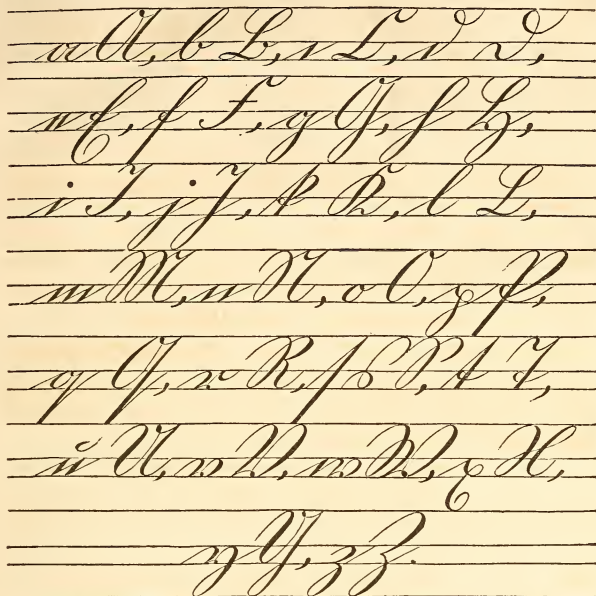 a A, b B, c C, d D,
e E, f F, g G, h H,
i I, j J, k K, l L,
m M, n N, o O, p P,
q Q, r R, ſ s S, t T,
u U, v V, w W, x X,
y Y, z Z.